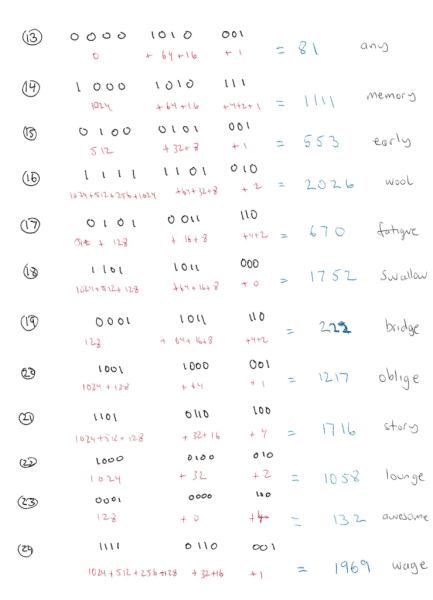 13 0 0 0 0 1 0 1 0 001
0 + 64+16 + 1 = 81 any
14 1 0 0 0 1 0 1 0 111
1024 + 64+16 +4+2+1 = 1111 memory
15 0 1 0 0 0 1 0 1 001
512 +32+8 +1 = 553 early
16 1 1 1 1 1 1 0 1 010
1024+512+256+1024 +64+32+8 + 2 = 2026 wool
17 0 1 0 1 0 011 110
+ 128 + 16+8 +4+2 = 670 fatigue
18 1 101 1011 000
1024+512+128 +64+16+8 + 0 = 1752 swallow
19 0001 1011 110
128 + 64+16+8 +4+2 = 222 bridge
20 1001 1000 001
1024 + 128 + 64 + 1 = 1217 oblige
21 1101 0110 100
1024+512+128 + 32+16 + 4 = 1716 story
22 1000 0100 010
1024 + 32 +2 = 1058 lounge
23 0001 0000 100
128 + 0 +4 = 132 awesome
24 1111 0110 001
1024+512+256+128 + 32+16 +1 = 1969 wage